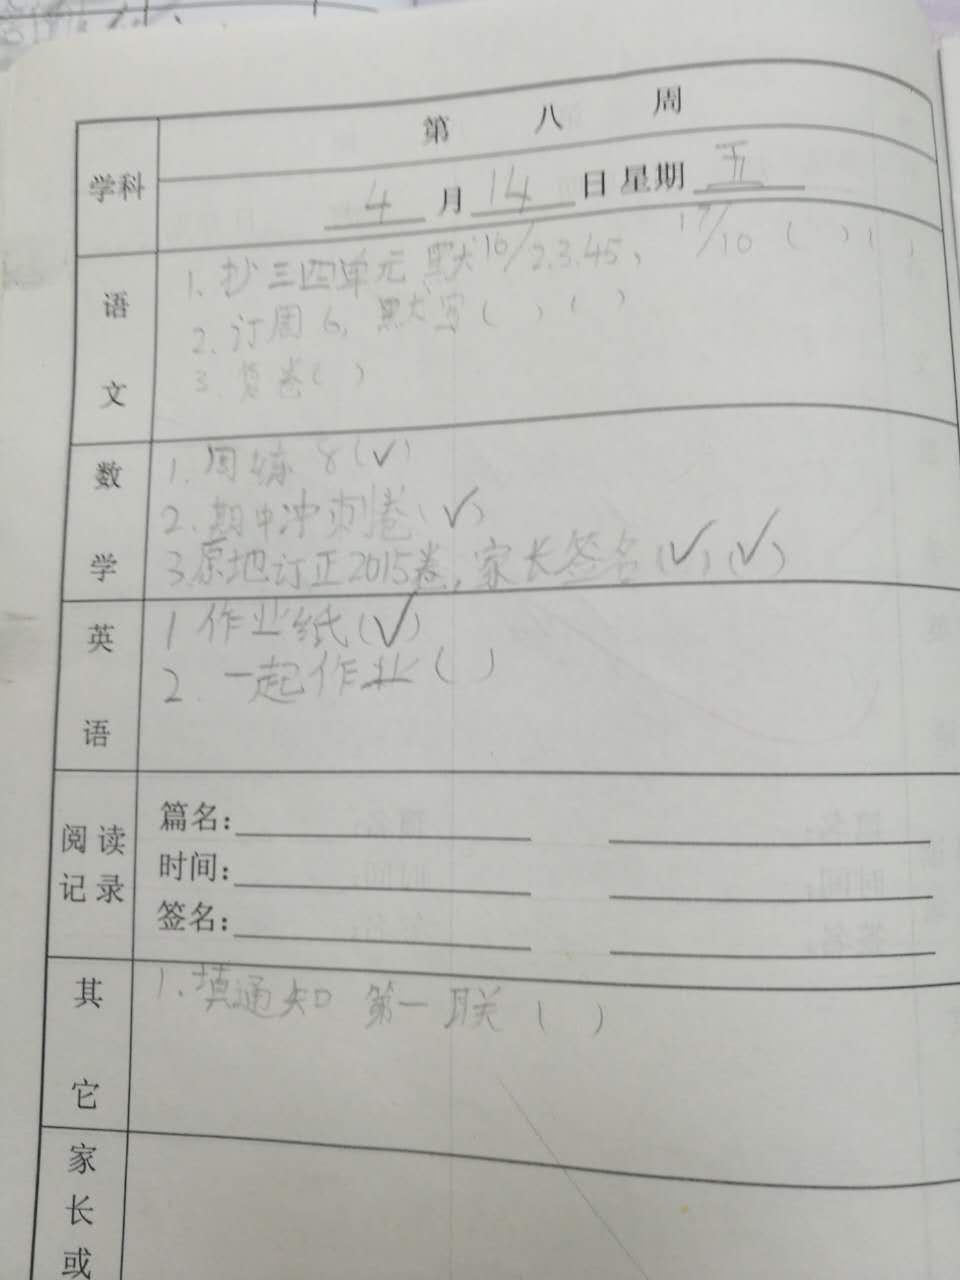 第 八 周
学科
4 月 14 日 星期 五
语文
1. 抄三四单元 默 16/2.3.45, 17/10 ( ) ( )
2. 订周 6, 默写 ( ) ( )
3. 卷 ( )
数学
1. 周练 8 (✓)
2. 期中冲刺卷 (✓)
3. 原地订正2015卷, 家长签名 (✓) (✓)
英语
1 作业纸 (✓)
2. 一起作业 ( )
阅读记录
篇名:
时间:
签名:
其它
1. 填通知 第一联 ( )
家长或